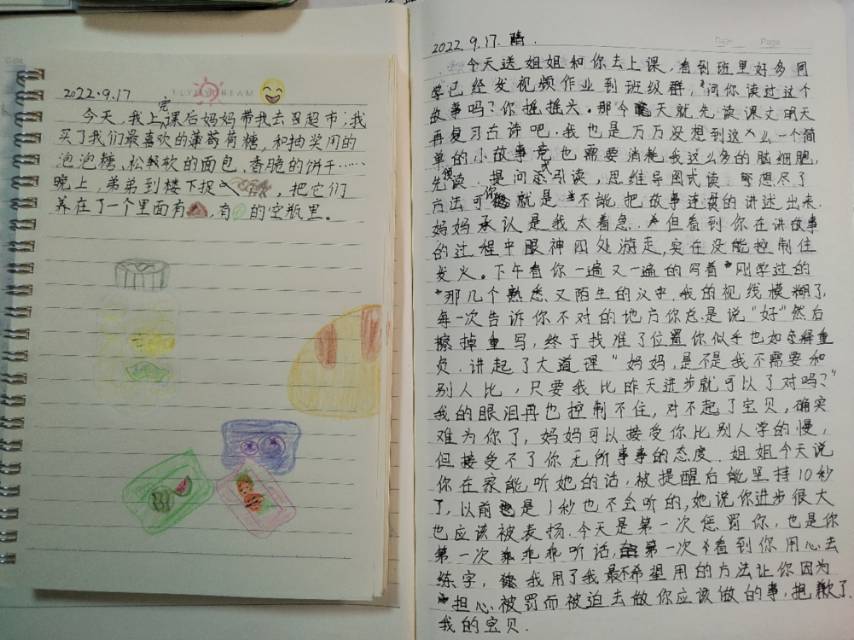 2022.9.17
今天,我上完课后妈妈带我去了超市,我
买了我们最喜欢的薄荷糖,和抽奖用的
泡泡糖、松软的面包、香脆的饼干……
晚上,弟弟到楼下投,把它们
养在了一个里面有,有的空瓶里。
2022.9.17. 晴.
今天送姐姐和你去上课,看到班里好多同
学已经发视频作业到班级群,问你读过这个
故事吗?你摇摇头。那今天就先读课文明天
再复习古诗吧.我也是万万没想到这么一个简
单的小故事竟也需要消耗我这么多的脑细胞,
先读、提问引读,思维导图式读 想尽了
方法可你就是不能把故事连读的讲述出来.
妈妈承认是我太着急.但看到你在讲故事
的过程中眼神四处游走,实在没能控制住
发火。下午看你一遍又一遍的写着"刚学过的
"那几个熟悉又陌生的汉字,我的视线模糊了,
每一次告诉你不对的地方你总是说"好"然后
擦掉重写,终于找准了位置你似乎也如释重
负.讲起了大道理"妈妈,是不是我不需要和
别人比,只要我比昨天进步就可以了对吗?"
我的眼泪再也控制不住,对不起了宝贝,确实
难为你了,妈妈可以接受你比别人学的慢,
但接受不了你无所事事的态度.姐姐今天说
你在家能听她的话,被提醒后能坚持10秒
了,以前是1秒也不会听的,她说你进步很大
也应该被表扬.今天是第一次惩罚你,也是你
第一次乖乖听话,第一次看到你用心去
练字,我用了我最不希望用的方法让你因为
担心被罚而被迫去做你应该做的事,抱歉了
我的宝贝.